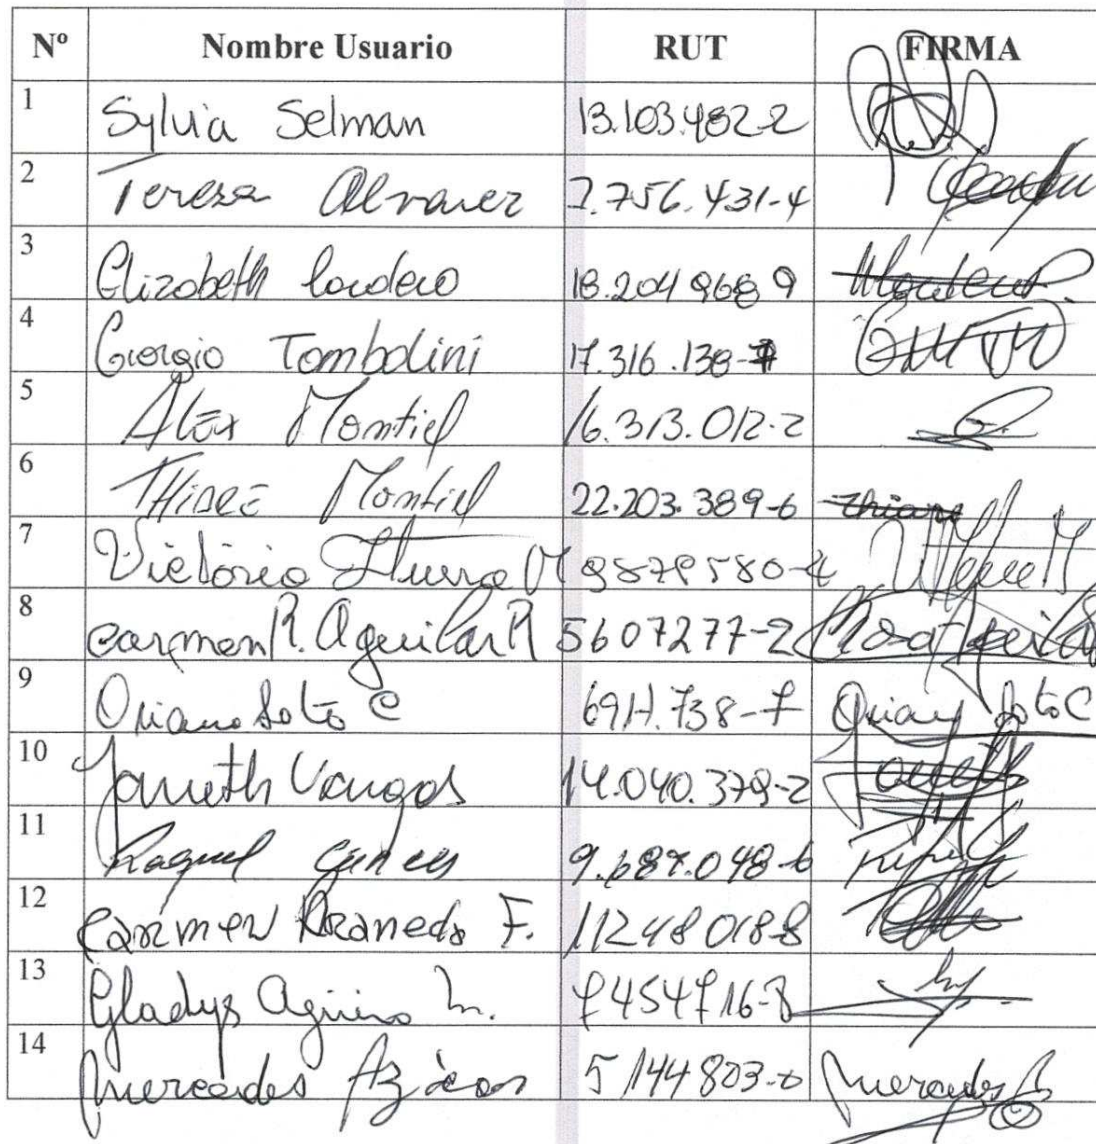 Nº Nombre Usuario RUT FIRMA
1 Sylvia Selman 13.103.482-2
2 Teresa Alvarez 7.756.431-4
3 Elizabeth Cordero 18.204 968 9
4 Giorgio Tombolini 17.316.138-7
5 Alex Montiel 16.313.012-2
6 Montiel 22.203.389-6 Thiare
7 Victoria M
8 Carmen R. Aguilar R 5607277-2 Rosa Aguilar
9 Oriana Soto C 6911.738-7 Oriana Soto C
10 Janeth Vargas 14.040.379-2 Janeth
11 Raquel
12 Carmen Araneda F. 11248018-8
13 Gladys Agüero M. 7454716-8
14 Mercedes 5144803-0 Mercedes